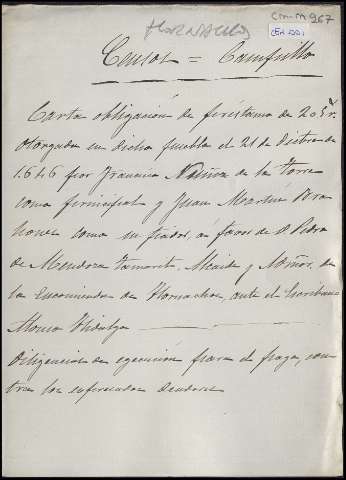 HORNACHOS
Censos = Campillo
Carta obligación de préstamo de
otorgada en dicha puebla el 21 de Dicbre de
1646 por Francisco Núñez de la Torre
como principal y Juan Martín
como su fiador, á favor de D. Pedro
de Mendoza Alcaide y Admor. de
la Encomienda de Hornachos, ante el Escribano
Alonso Hidalgo
Diligencias de egecución para el pago, con-
tra los espresados deudores